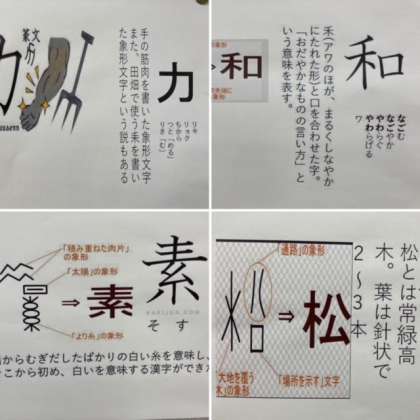 力
手の筋肉を書いた象形文字
また、田畑で使う耒を書い
た象形文字という説もある
リキ
リョク
ちから
つと「める」
りき「む」
和
禾(アワのほが、まるくしなやか
にたれた形)と口を合わせた字。
「おだやかなものの言い方」と
いう意味を表す。
なごむ
なごやか
やわらぐ
やわらげる
ワ
⇒和
の象形
「積み重ねた肉片」
の象形
「太陽」の象形
⇒素
「より糸」の象形
素
そ す
からむぎだしたばかりの白い糸を意味し、
こから初め、白いを意味する漢字ができ
松とは常緑高
木。葉は針状で
2〜3本
「通路」の象形
⇒松
「大地を覆う
木」の象形
「場所を示す」文字